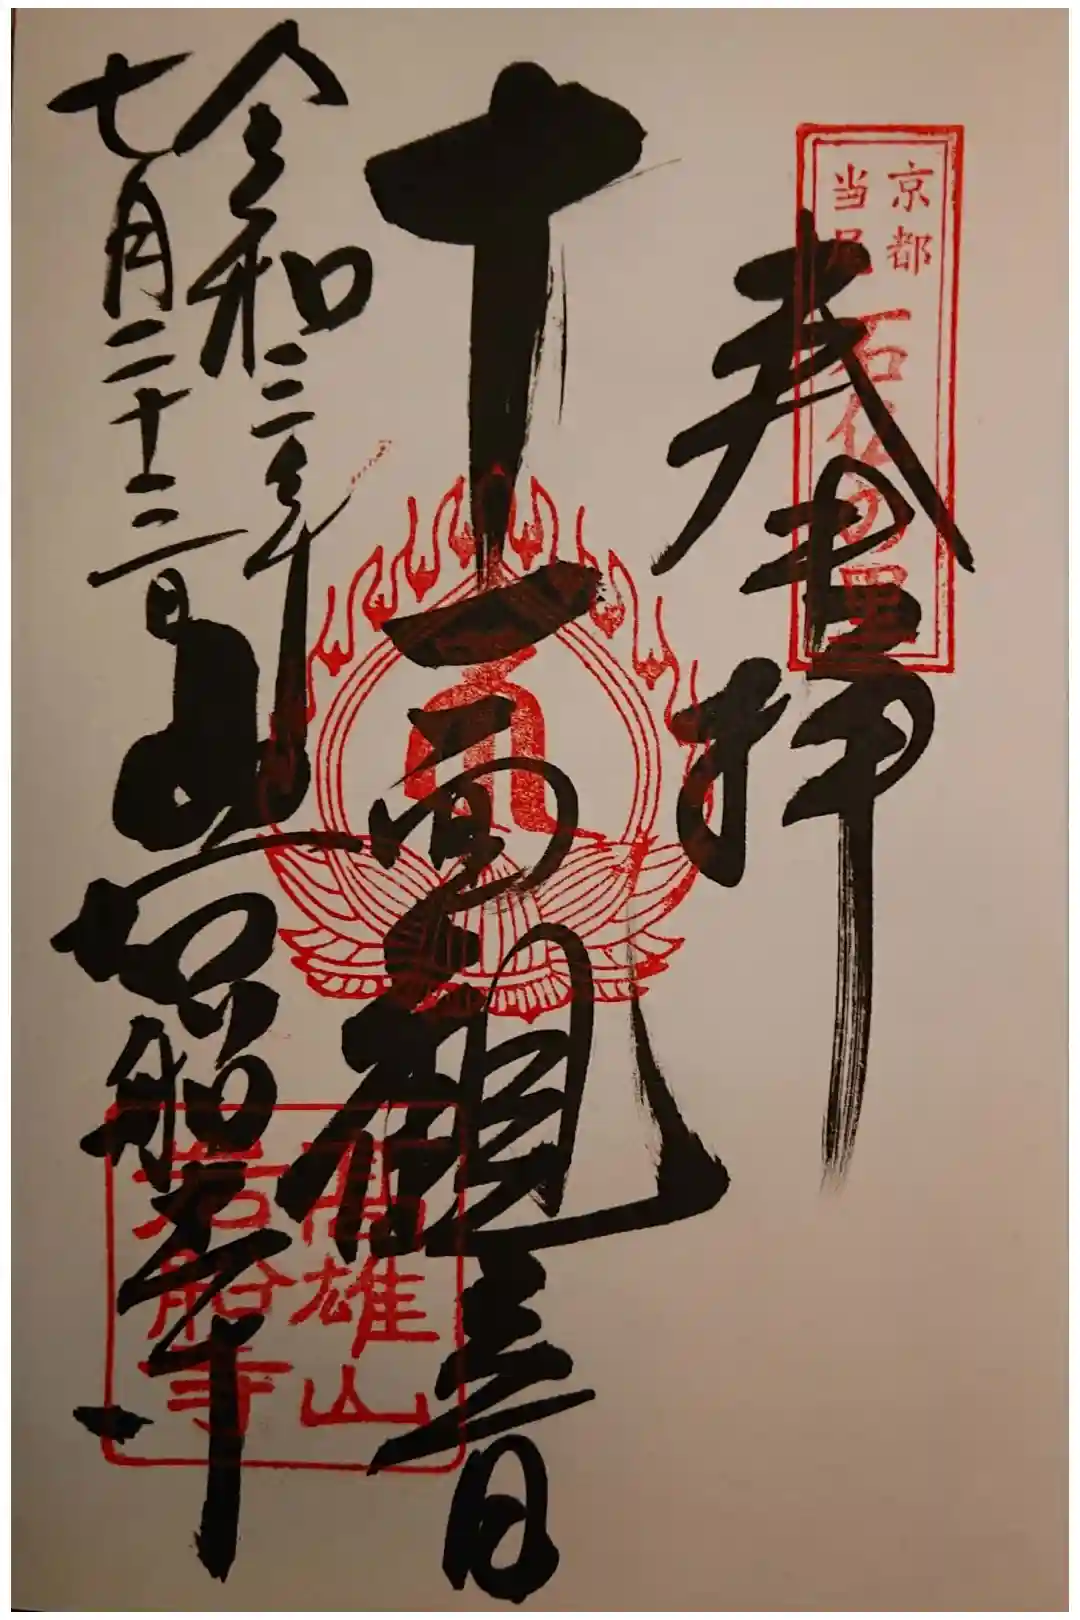 京都
当尾
石仏の里
奉拝
十一面観音
令和二年
七月二十三日
山岩船寺
高雄山
岩船寺